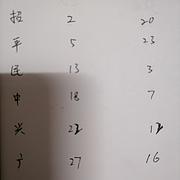 招 2 20
平 5 23
民 13 3
中 18 7
兴 22 12
广 27 16